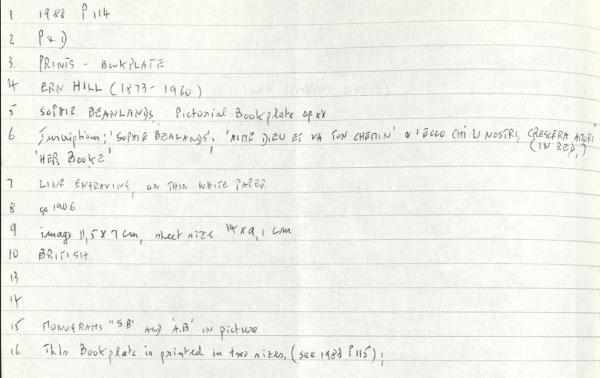 1 1988 P 114
2 P & D
3. PRINTS - BOOKPLATE
4 ERN HILL (1873-1960)
5 SOPHIE BEANLANDS, Pictorial Bookplate
6 Inscriptions; 'SOPHIE BEALANDS'; 'AIME DIEU ET VA TON CHEMIN' & 'ECCO CHI LI NOSTRI, CRESCERA
(IN RED,)
'HER BOOKE'
7 LINE ENGRAVING, ON THIN WHITE PAPER
8 ca 1906
9 image 11,5 x 7 cm, sheet size 14 x 9,1 cm
10 BRITISH
13
14
15 MONOGRAMS "S.B' AND 'A.B' in picture
16 This Bookplate is printed in two sizes, (see 1988 P 115);